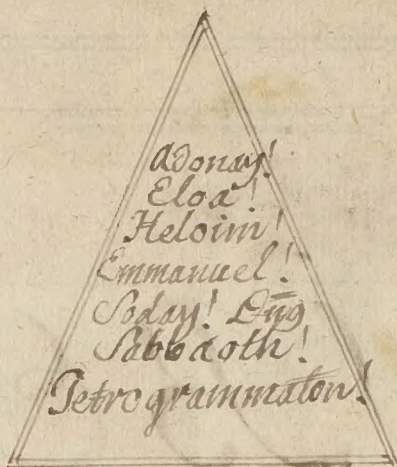 Adonay!
Eloa!
Heloim!
Emmanuel!
Soday! Dn̄s
Sabbaoth!
Tetrogrammaton!